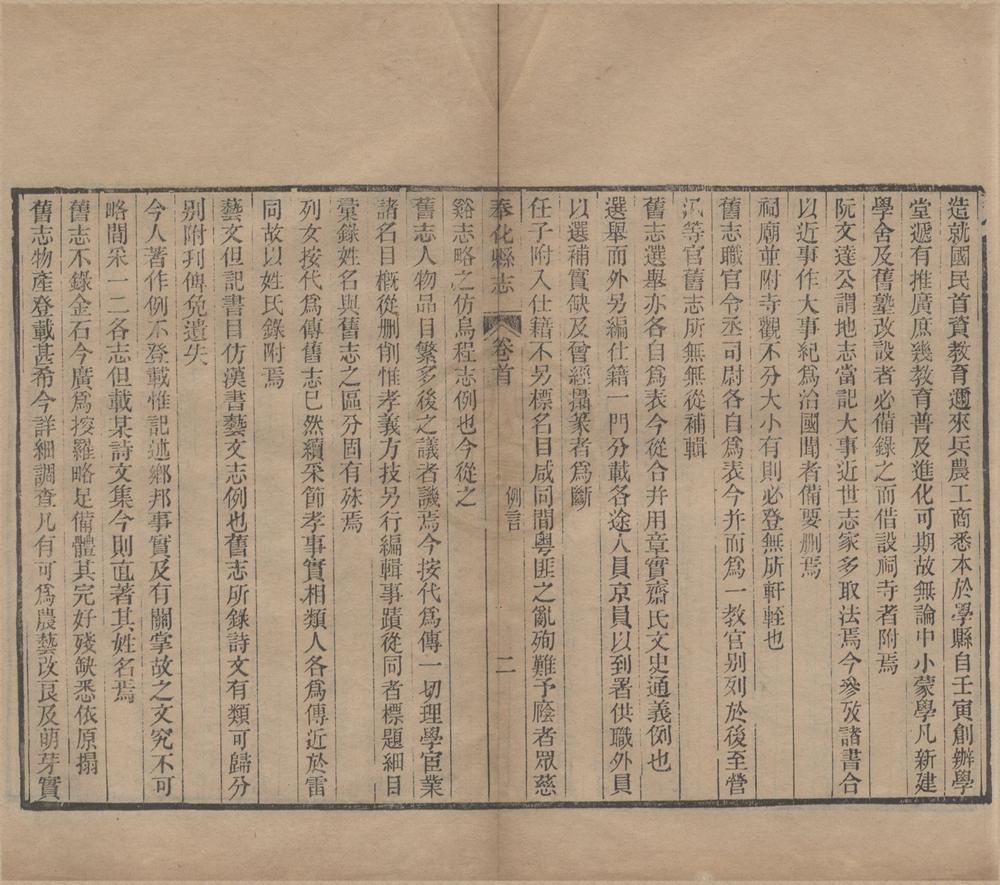 造就國民首資教育邇來兵農工商悉本於學縣自壬寅創辦學
堂遞有推廣庶幾教育普及進化可期故無論中小蒙學凡新建
學舍及舊塾改設者必備錄之而借設祠寺者附焉
阮文達公謂地志當記大事近世志家多取法焉今參攷諸書合
以近事作大事紀為治國聞者備要刪焉
祠廟並附寺觀不分大小有則必登無所軒輊也
舊志職官令丞司尉各自為表今并而為一教官别列於後至營
汛等官舊志所無無從補輯
舊志選舉亦各自為表今從合并用章實齋氏文史通義例也
選舉而外另編仕籍一門分載各途人員京員以到署供職外員
以選補實缺及曾經攝篆者為斷
任子附入仕籍不另標名目咸同間粵匪之亂殉難予廕者眾慈
奉化縣志
卷首
例言
二
谿志略之仿烏程志例也今從之
舊志人物品目繁多後之議者譏焉今按代為傳一切理學宦業
諸名目概從刪削惟孝義方技另行編輯事蹟從同者標題細目
彙錄姓名與舊志之區分固有殊焉
列女按代為傳舊志已然續采節孝事實相類人各為傳近於雷
同故以姓氏錄附焉
藝文但記書目仿漢書藝文志例也舊志所錄詩文有類可歸分
别附刋俾免遺失
今人著作例不登載惟記述鄉邦事實及有關掌故之文究不可
略間采一二各志但載某詩文集今則直著其姓名焉
舊志不錄金石今廣為搜羅略足備體其完好殘缺悉依原搨
舊志物產登載甚希今詳細調查凡有可為農藝改良及萌芽實